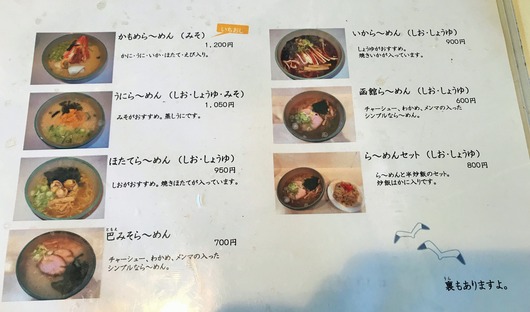 かもめら〜めん（みそ）
いちおし
1,200円
かに・うに・いか・ほたて・えび入り。
うにら〜めん（しお・しょうゆ・みそ）
1,050円
みそがおすすめ。蒸しうにです。
ほたてら〜めん（しお・しょうゆ）
950円
しおがおすすめ。焼きほたてが入っています。
ともえ
巴みそら〜めん
700円
チャーシュー、わかめ、メンマの入った
シンプルなら〜めん。
いから〜めん（しお・しょうゆ）
900円
しょうゆがおすすめ。
焼きいかが入っています。
函館ら〜めん（しお・しょうゆ）
600円
チャーシュー、わかめ、メンマの入った
シンプルなら〜めん。
ら〜めんセット（しお・しょうゆ）
800円
ら〜めんと半炒飯のセット。
炒飯はかに入りです。
うら
裏もありますよ。